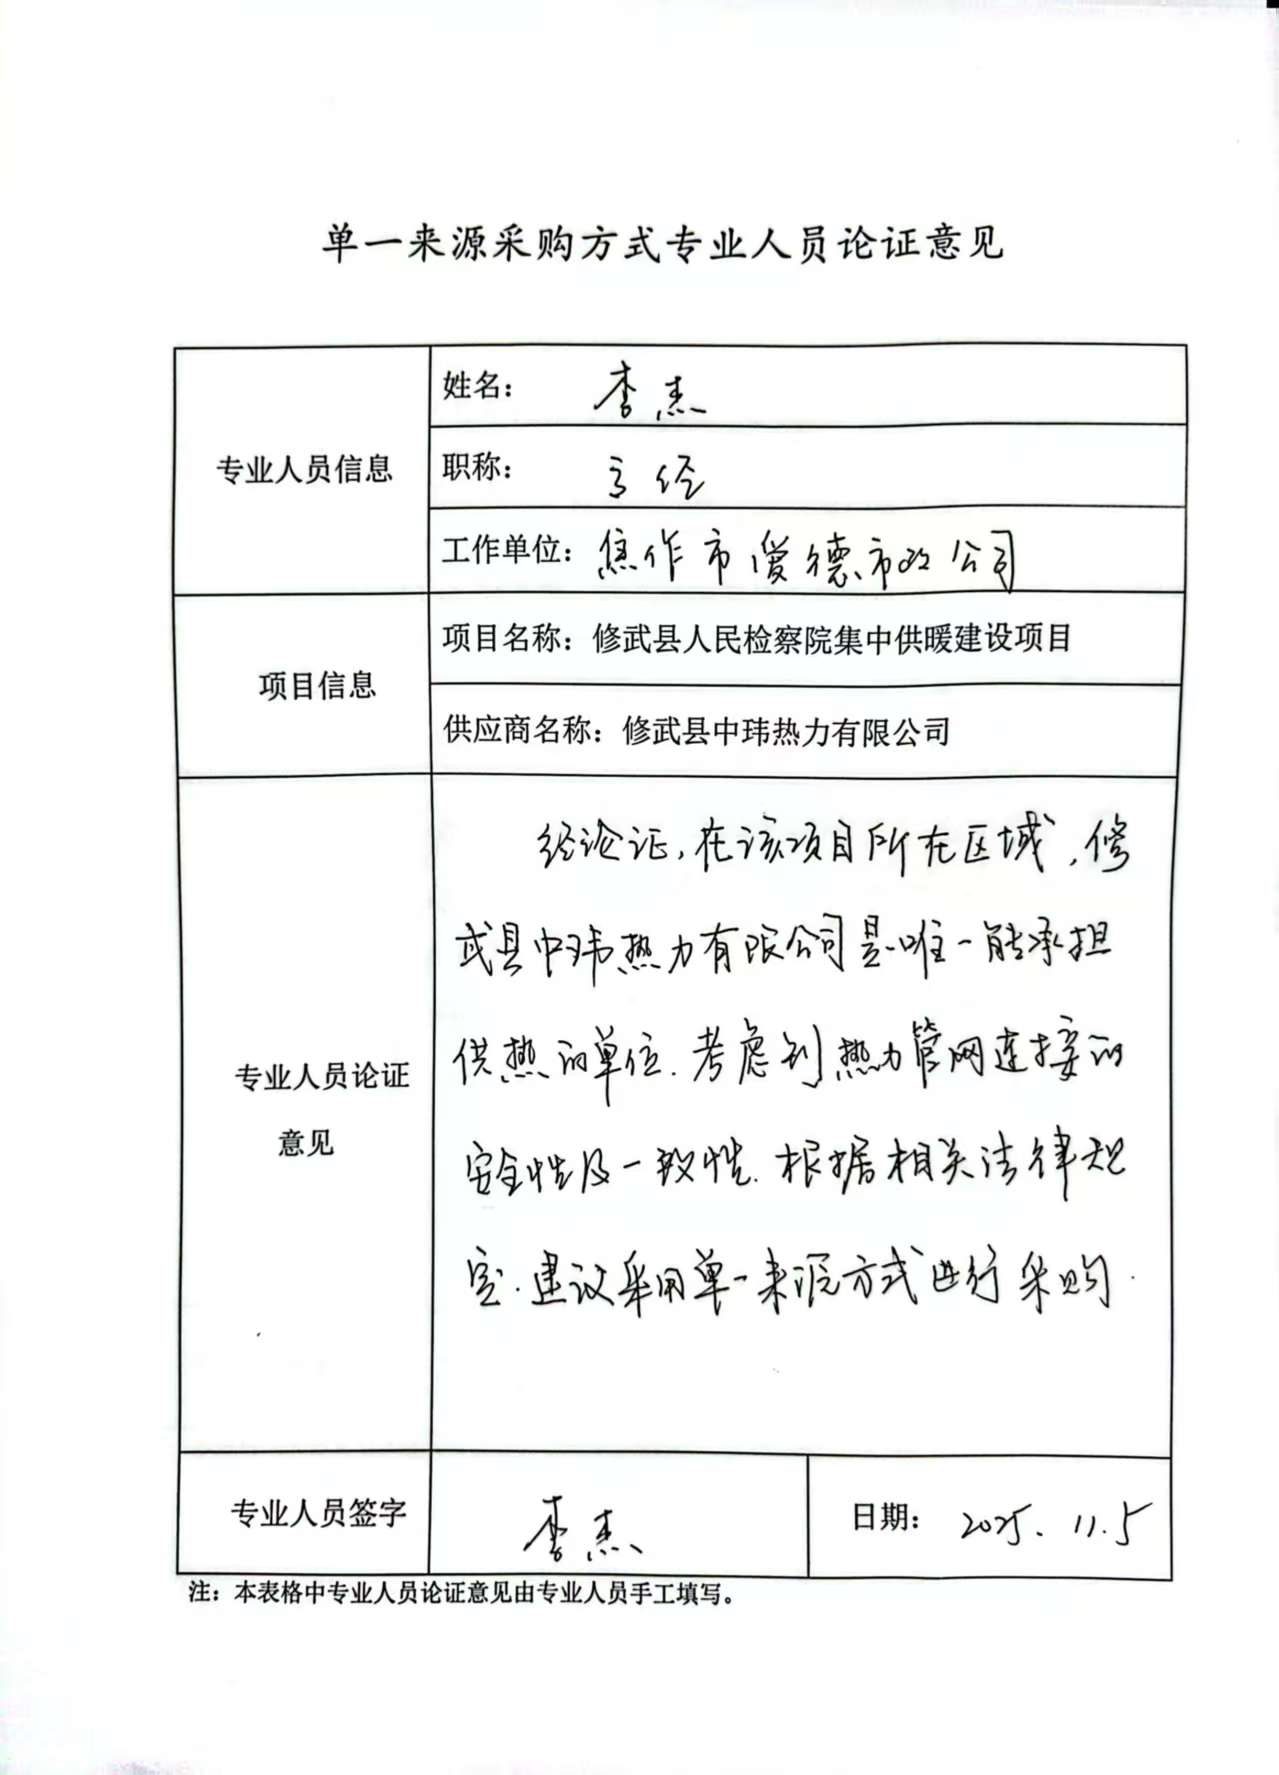 单一来源采购方式专业人员论证意见
专业人员信息
姓名： 李杰
职称： 高经
工作单位： 焦作市爱德市政公司
项目信息
项目名称：修武县人民检察院集中供暖建设项目
供应商名称：修武县中玮热力有限公司
专业人员论证
意见
经论证，在该项目所在区域，修
武县中玮热力有限公司是唯一能承担
供热的单位．考虑到热力管网连接的
安全性及一致性．根据相关法律规
定．建议采用单一来源方式进行采购．
专业人员签字
李杰
日期： 2025．11．5
注：本表格中专业人员论证意见由专业人员手工填写。